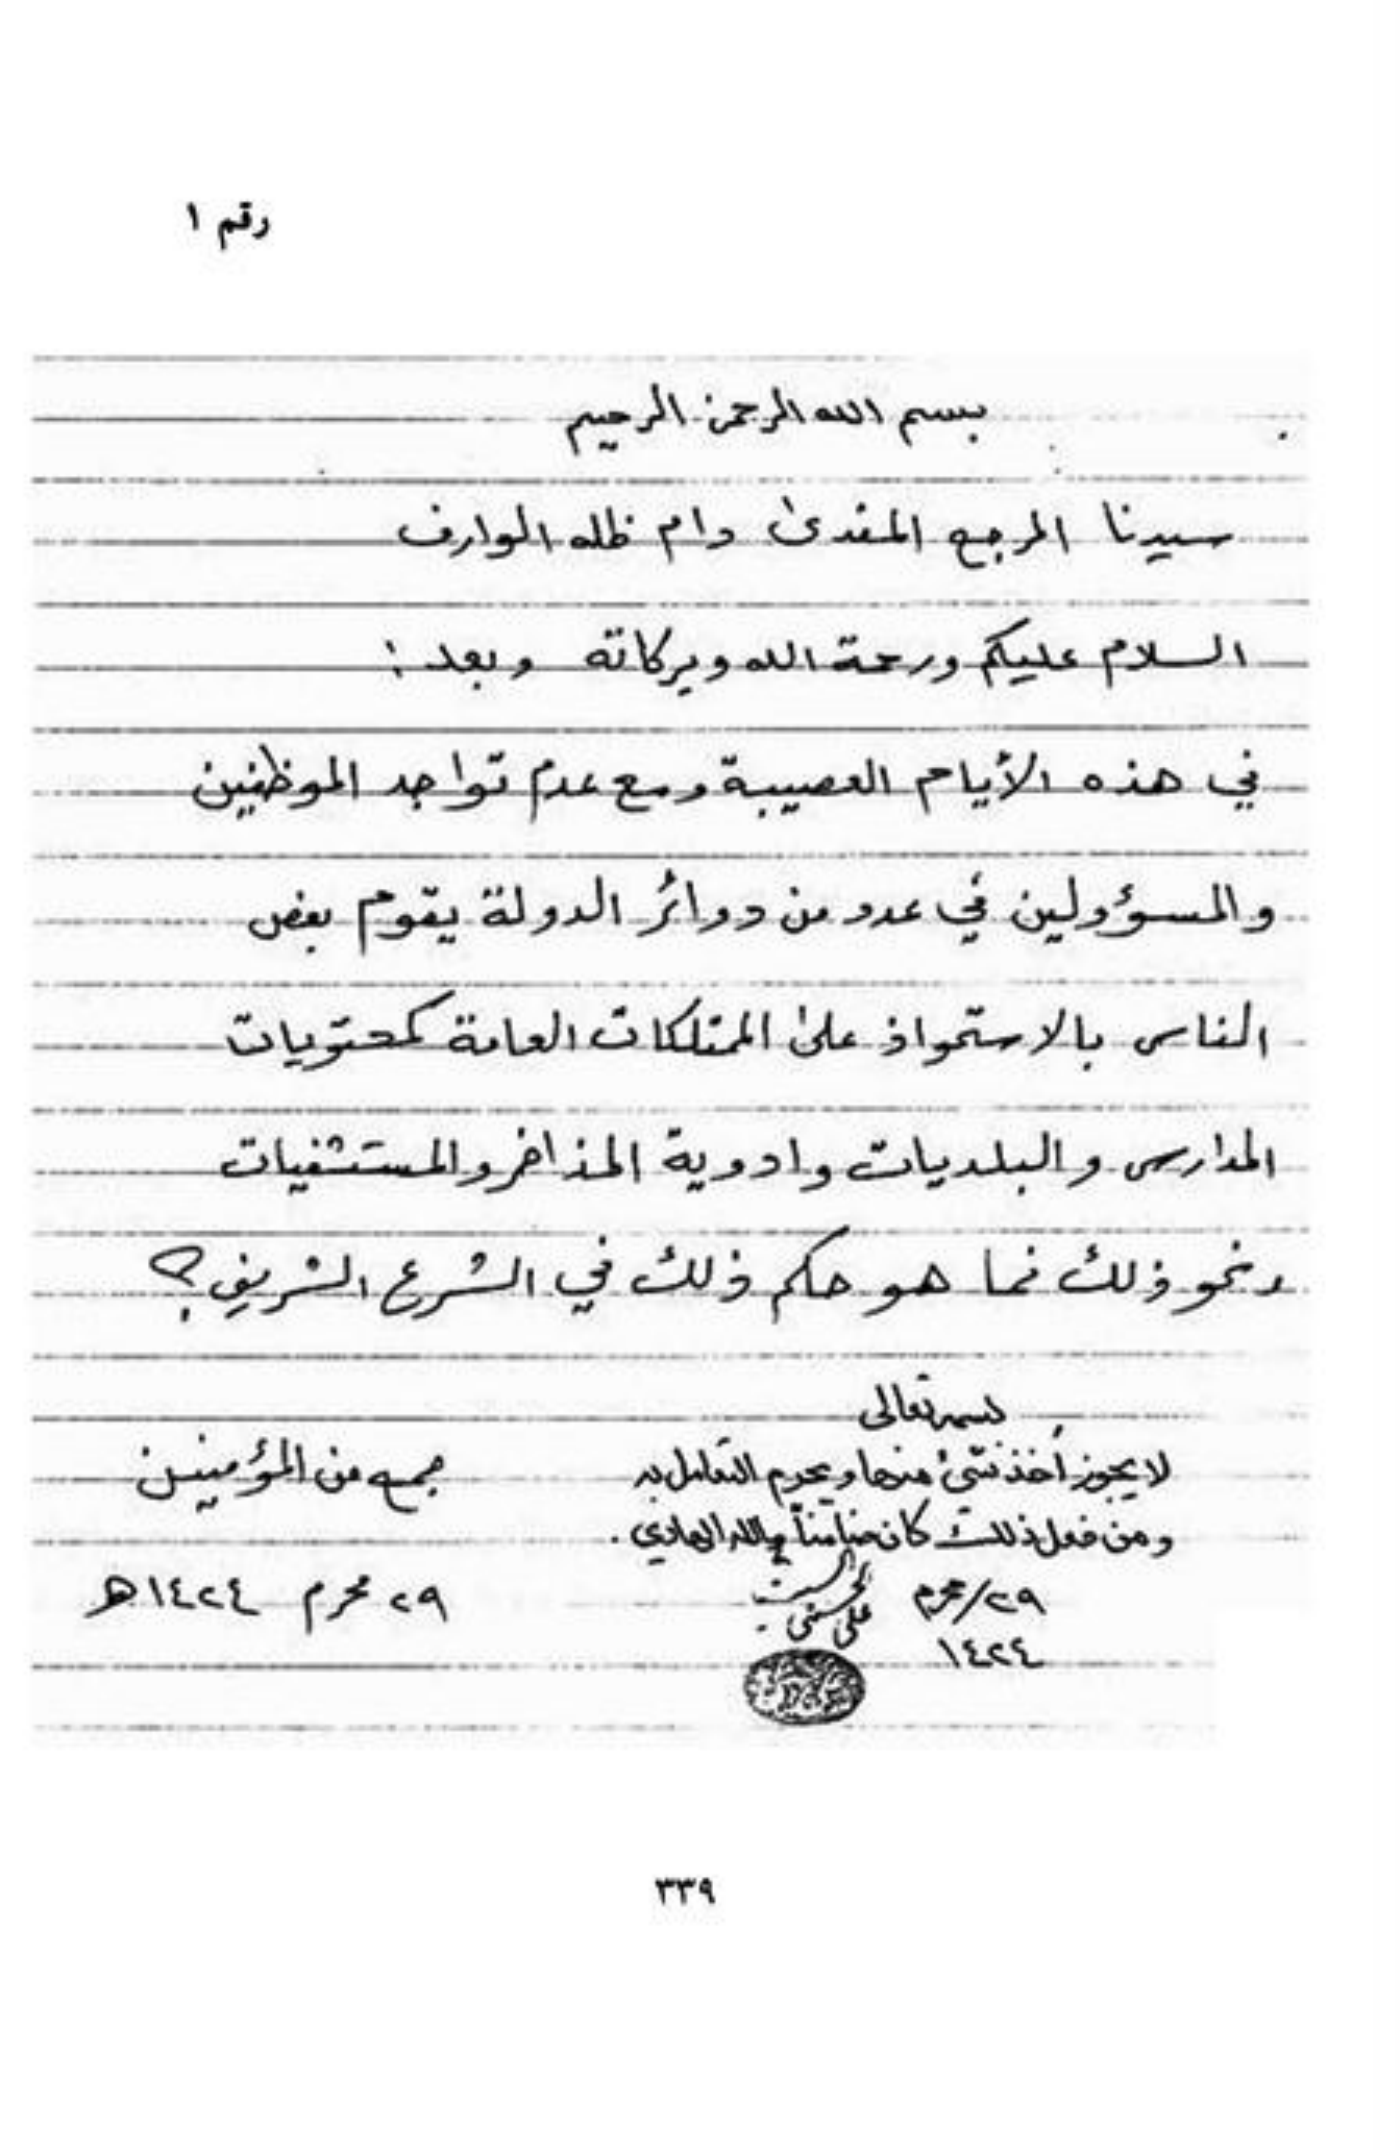 رقم ١
بسم الله الرحمن الرحيم
سيدنا المرجع المفدى دام ظله الوارف
السلام عليكم ورحمة الله وبركاته وبعد :
في هذه الأيام العصيبة ومع عدم تواجد الموظفين
والمسؤولين في عدد من دوائر الدولة يقوم بعض
الناس بالاستحواذ على الممتلكات العامة كمحتويات
المدارس والبلديات وادوية المذاخر والمستشفيات
ونحو ذلك فما هو حكم ذلك في الشرع الشريف؟
بسمه تعالى
لا يجوز أخذ شيء منها ويحرم التعامل به
ومن فعل ذلك كان ضامناً والله الهادي .
٢٩/محرم
١٤٢٤
علي الحسيني
جمع من المؤمنين
٢٩ محرم ١٤٢٤ هـ
٣٣٩